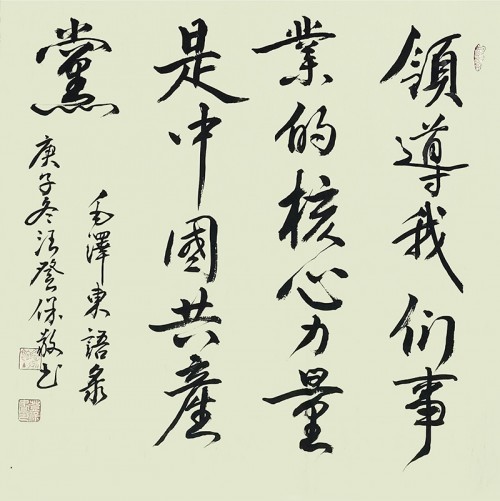 領導我们事
業的核心力量
是中國共產
黨
毛澤東語录
庚子冬汪登保敬书